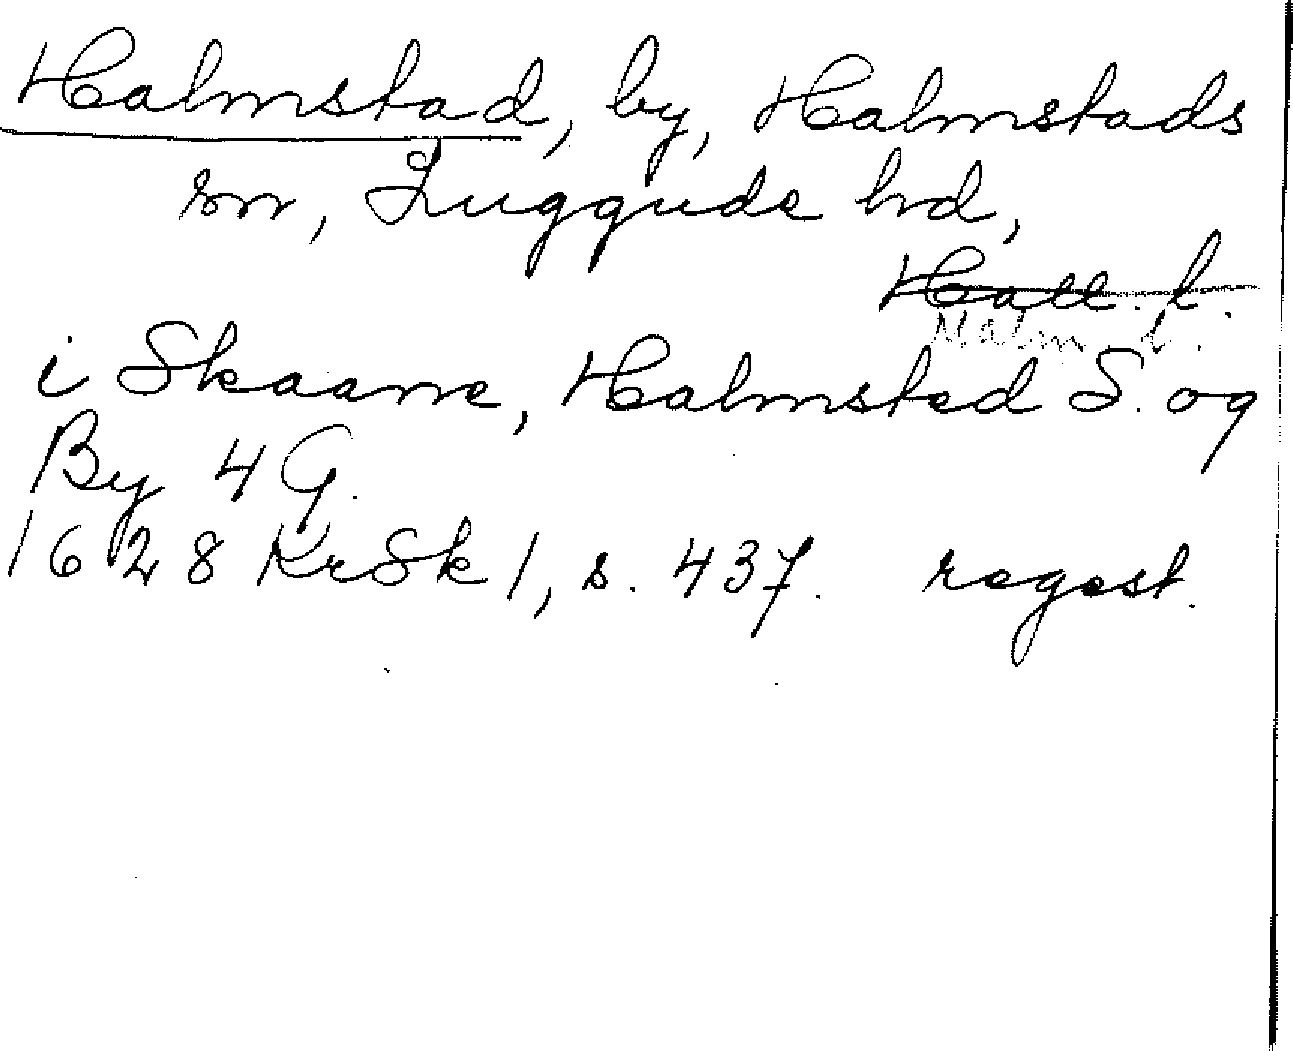 Halmstad, by, Halmstads
sn, Luggude hd,
Hall. l.
Malm l.
i Skaane, Halmsted S. og
By 4 G.
1628 KrSk 1, s. 437. regest.